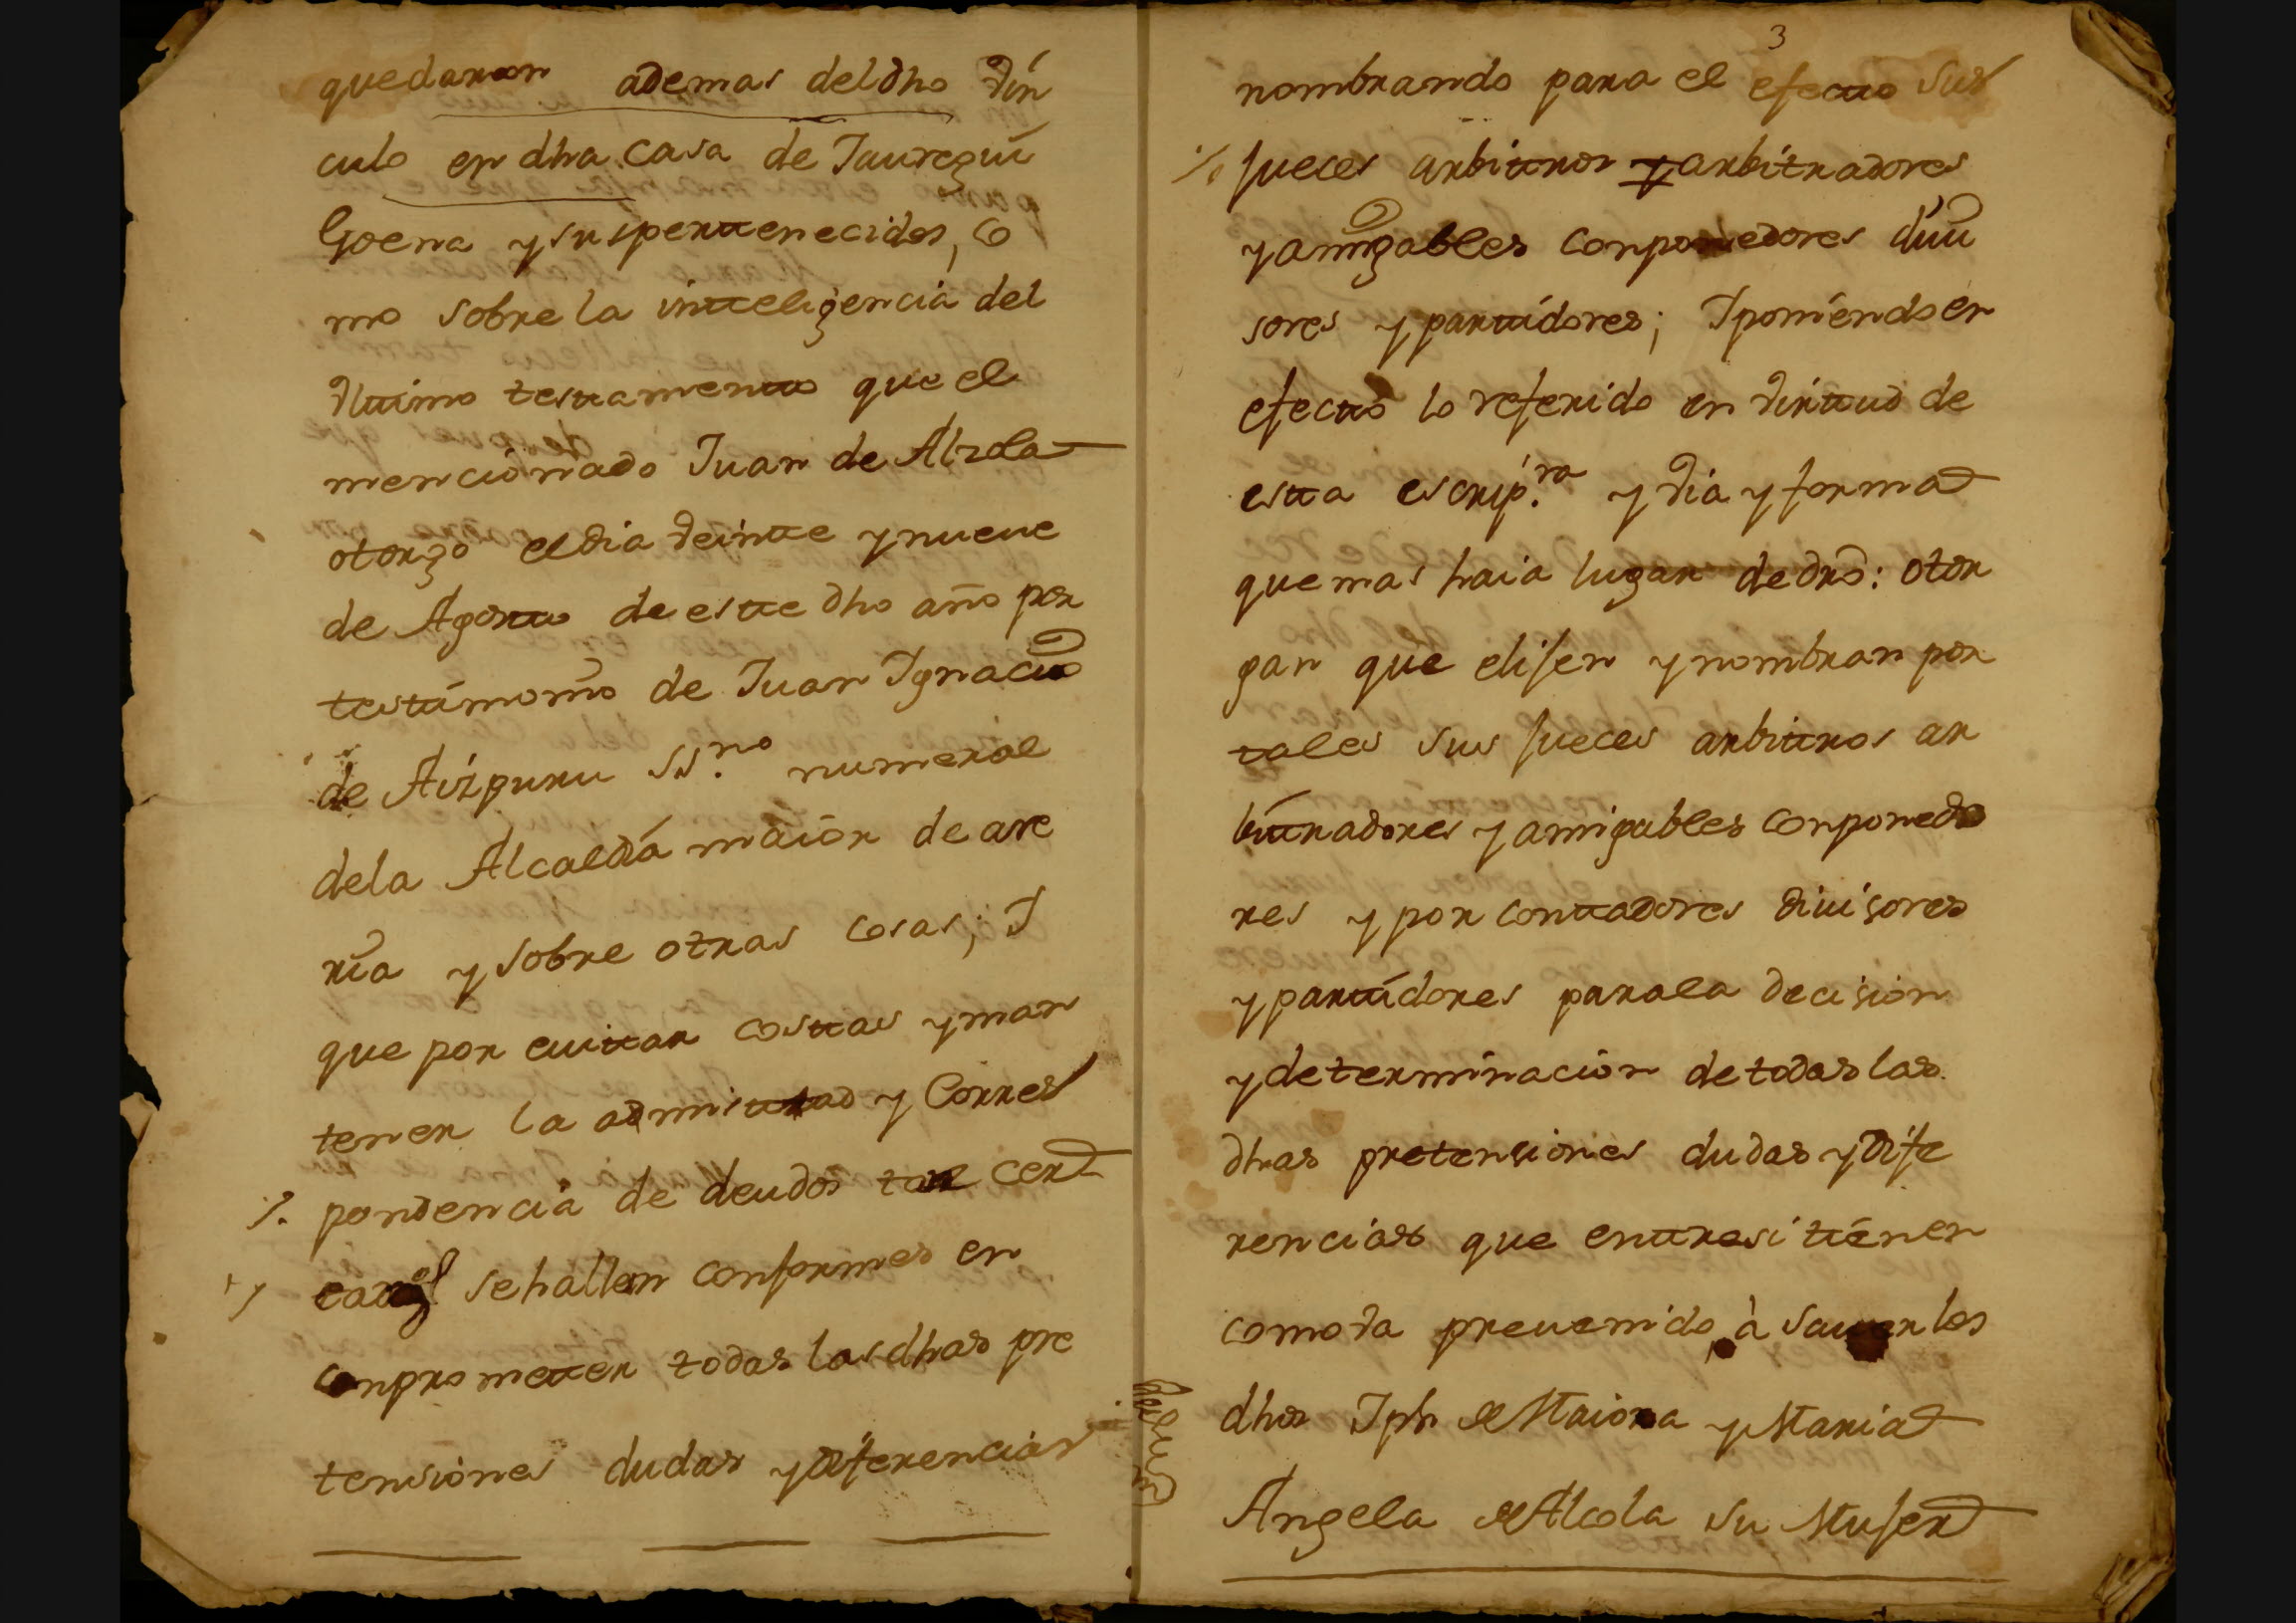 quedaron ademas del dho vin
culo en dha casa de Jauregui
Goena y sus pertenecidos, co
mo sobre la inteligencia del
vltimo testamento que el
mencionado Juan de Alzola
otorgo el dia veinte y nueve
de Agosto de este dho año por
testimonio de Juan Ignacio
de Aizpuru ss.no numeral
dela Alcaldia maior de are
ria y sobre otras cosas; I
que por euitar costas y man
tener la admistad y Corres
pondencia de deudos tan cer
se hallan conformes en
conprometer todas las dhas pre
tensiones dudas y diferencias
3
nombrando para el efecto sus
jueces arbitros y arbitradores
y amigables conponedores diui
sores y partidores; I poniendo en
efecto lo referido en virtud de
esta escrip.ra y via y forma
que mas haia lugar de dro: otor
gan que elijen y nombran por
tales sus jueces arbitros ar
bitradores y amigables conponedo
res y por contadores diuisores
y partidores para la decision
y determinacion de todas las
dhas pretensiones dudas y dife
rencias que entre si tienen
como va preuenido, à sauer los
dhos Jph de Maiora y Maria
Angela de Alcola su Mujer